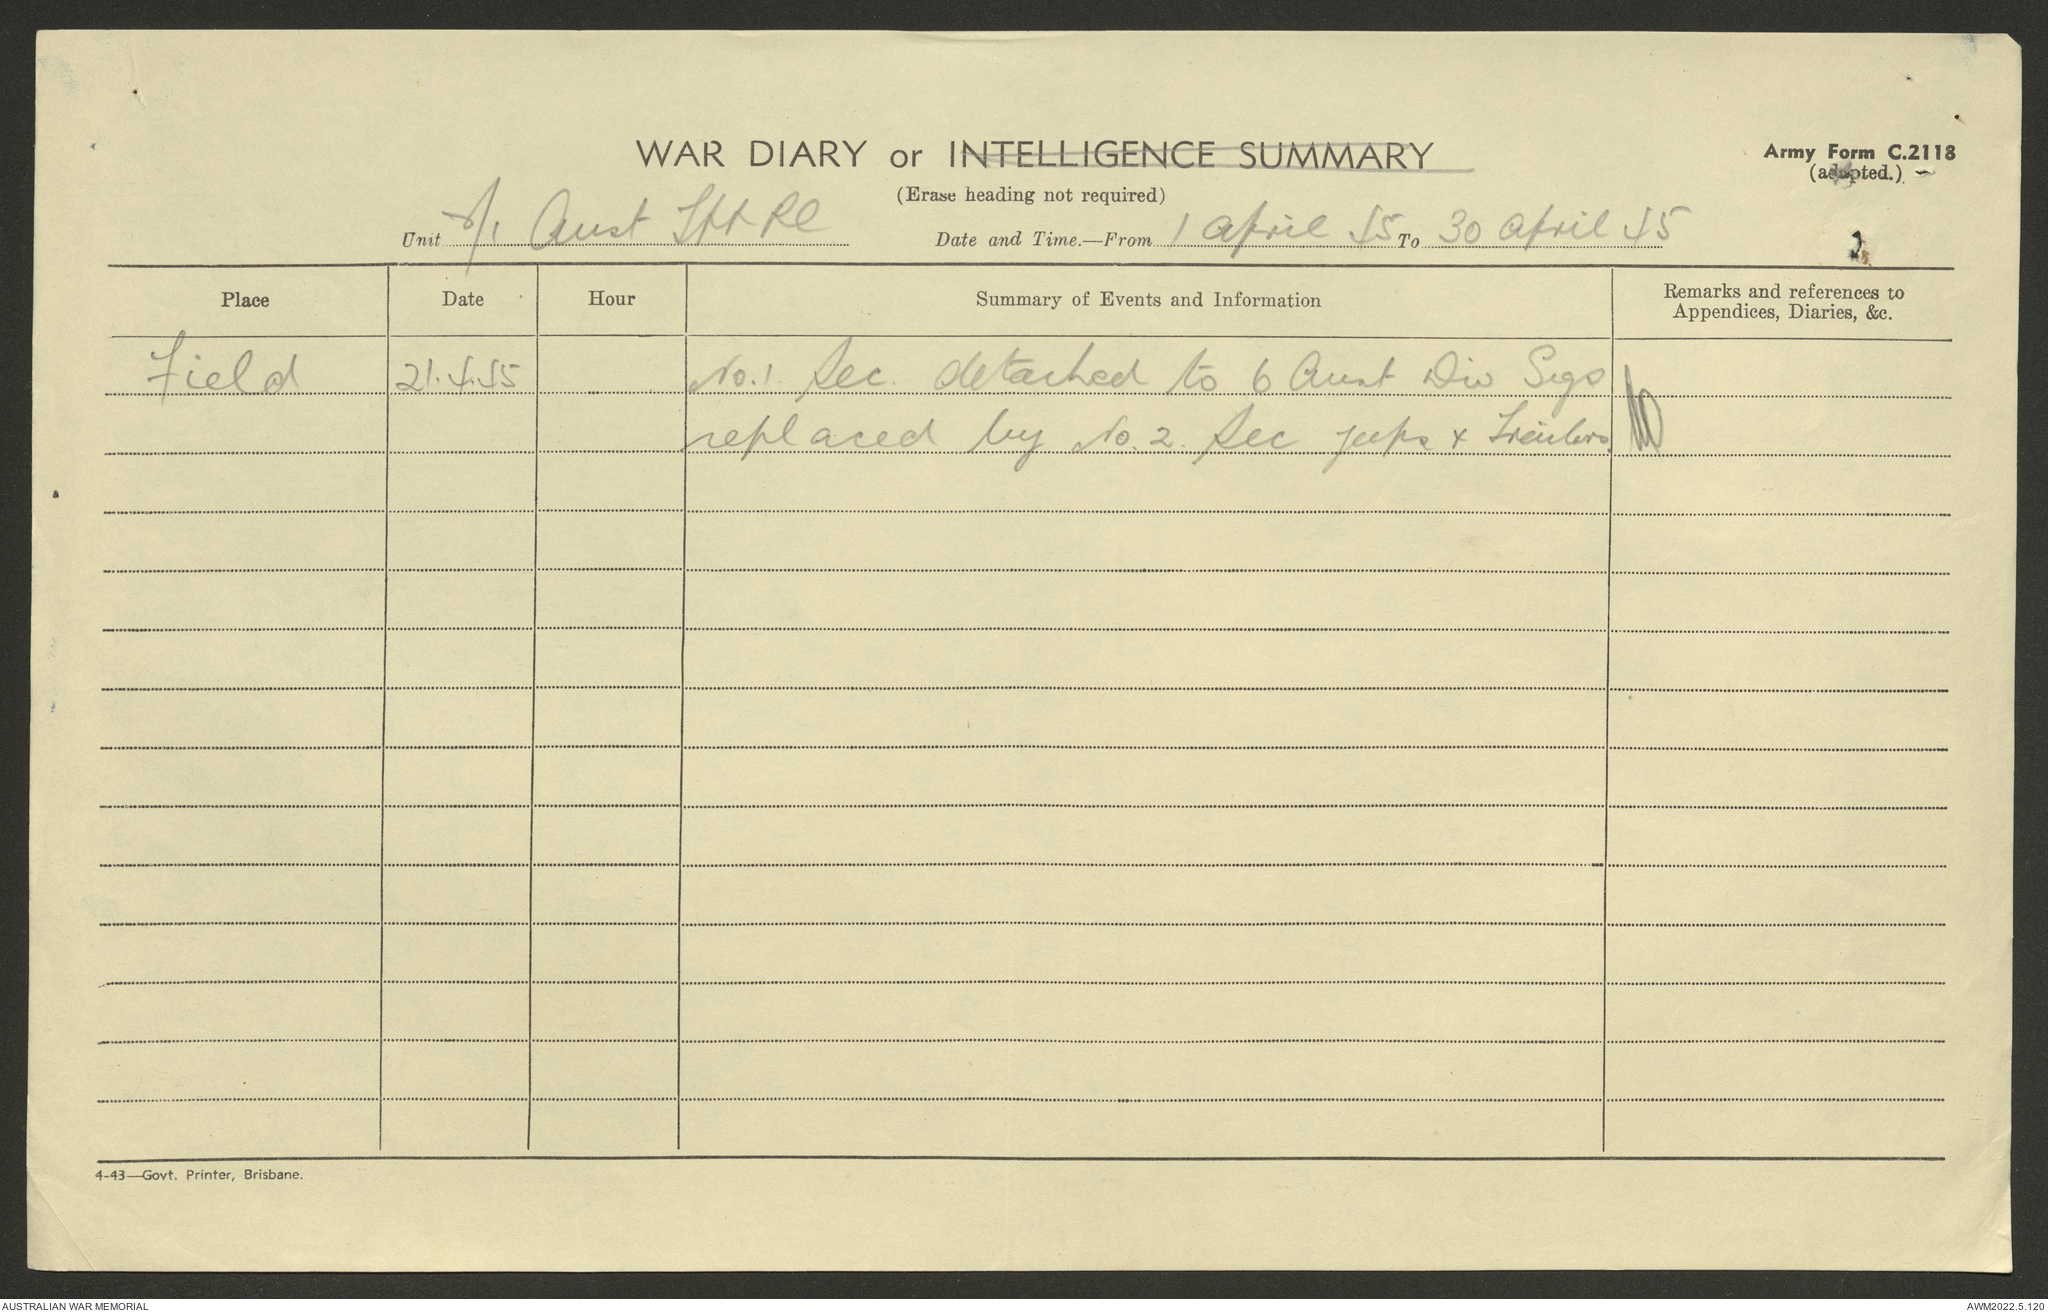 WAR DIARY or INTELLIGENCE SUMMARY
Army Form C.2118
(adapted.)
(Erase heading not required)
Unit 2/1 Aust
Date and Time.—From 1 April 45 To 30 April 45
2
Place Date Hour Summary of Events and Information Remarks and references to
Appendices, Diaries, &c.
Field 21.4.45 No. 1. Sec. detached to 6 Aust Div Sigs
replaced by No. 2. Sec jeeps & Trailers
4-43—Govt. Printer, Brisbane.
AUSTRALIAN WAR MEMORIAL
AWM2022.5.120